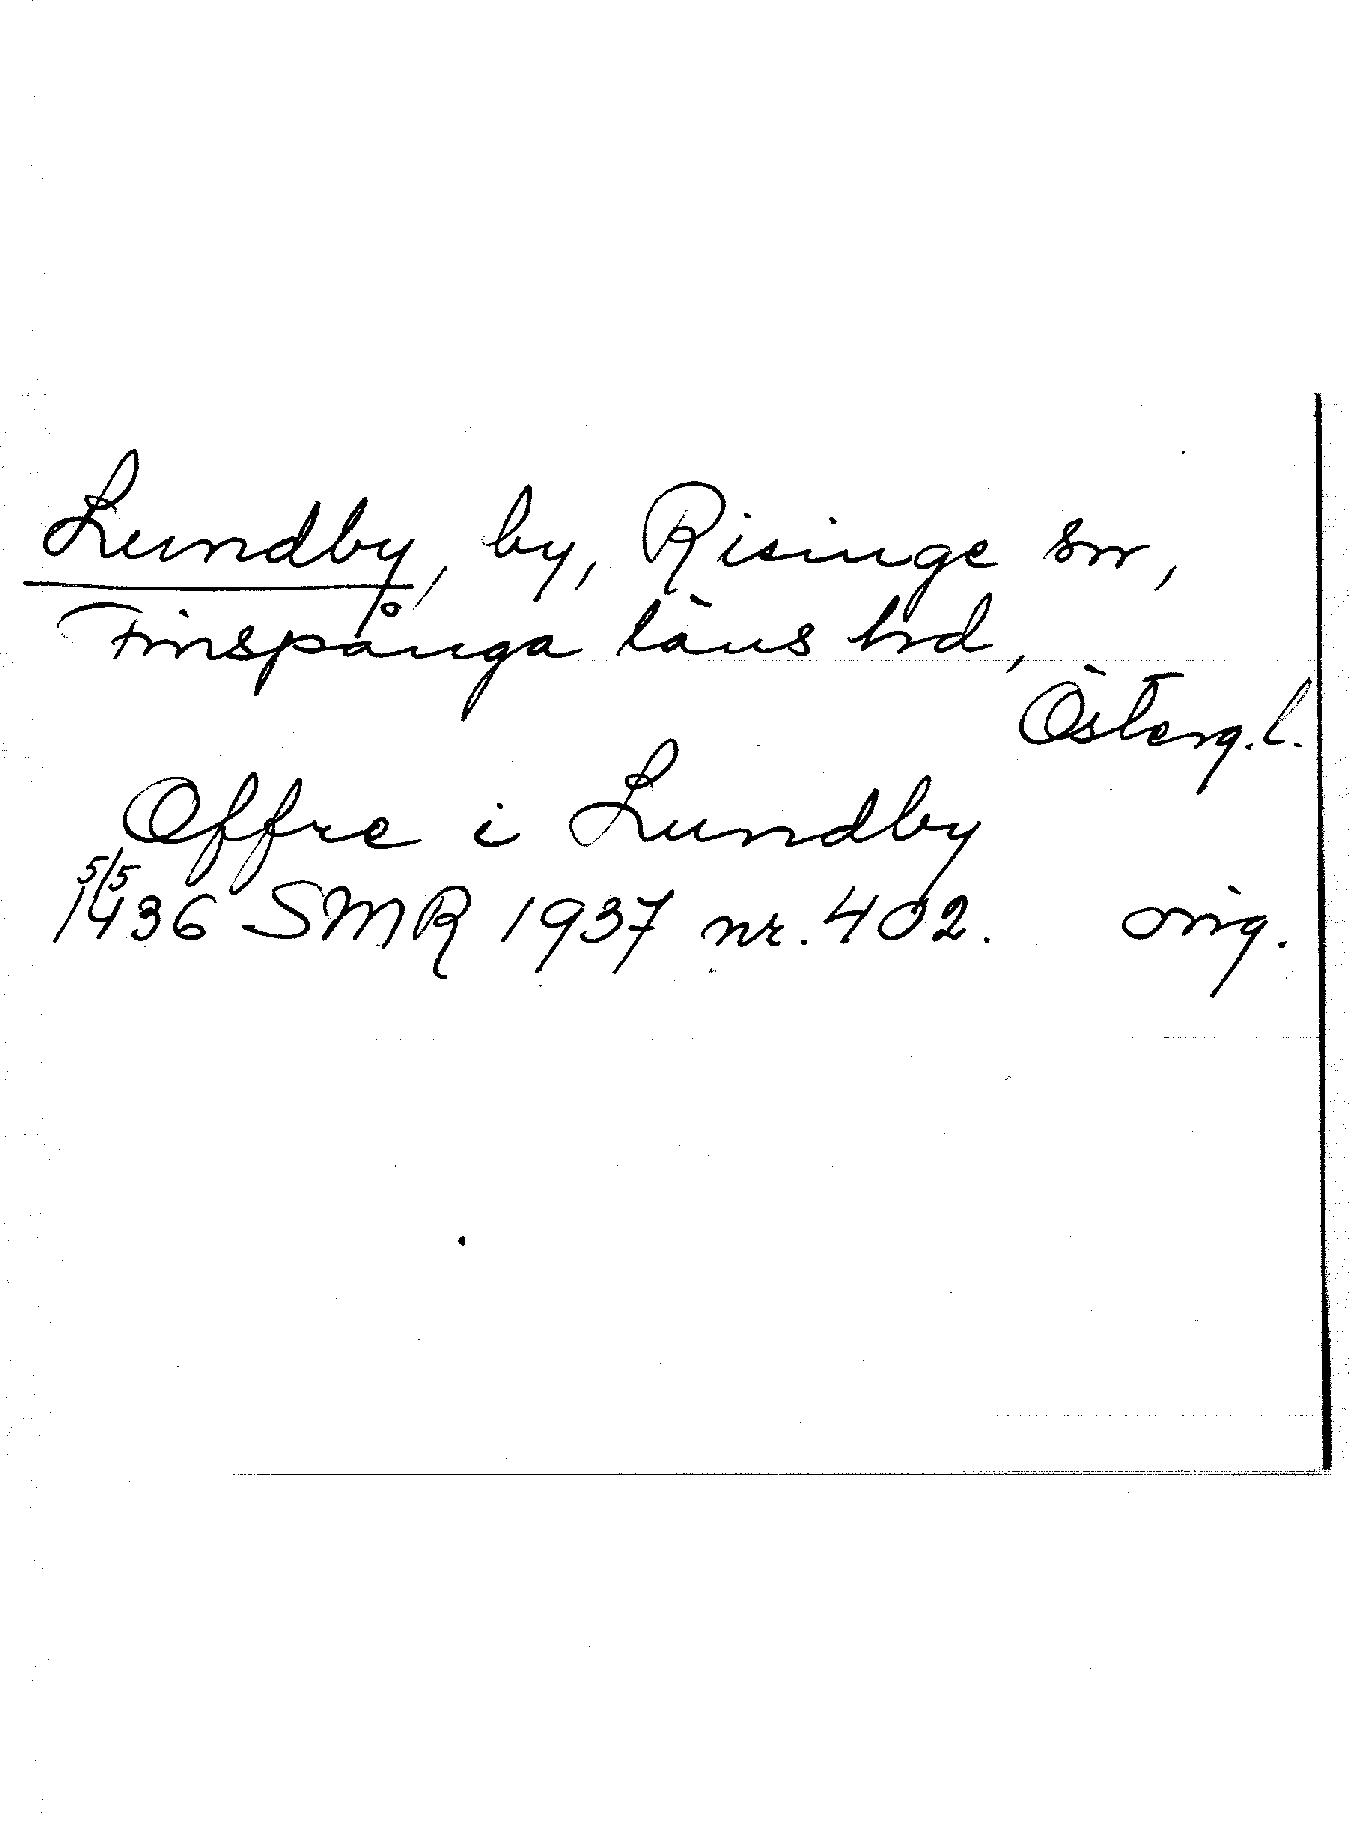 Lundby, by, Risinge sn,
Finspånga läns hd,
Österg. l.
Offre i Lundby
5/5
1436 SMR 1937 nr. 402. orig.